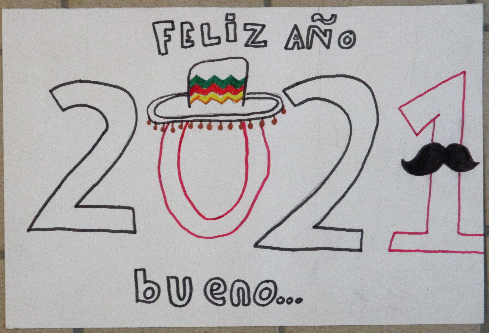 FELiZ AÑO
2021
bueno...